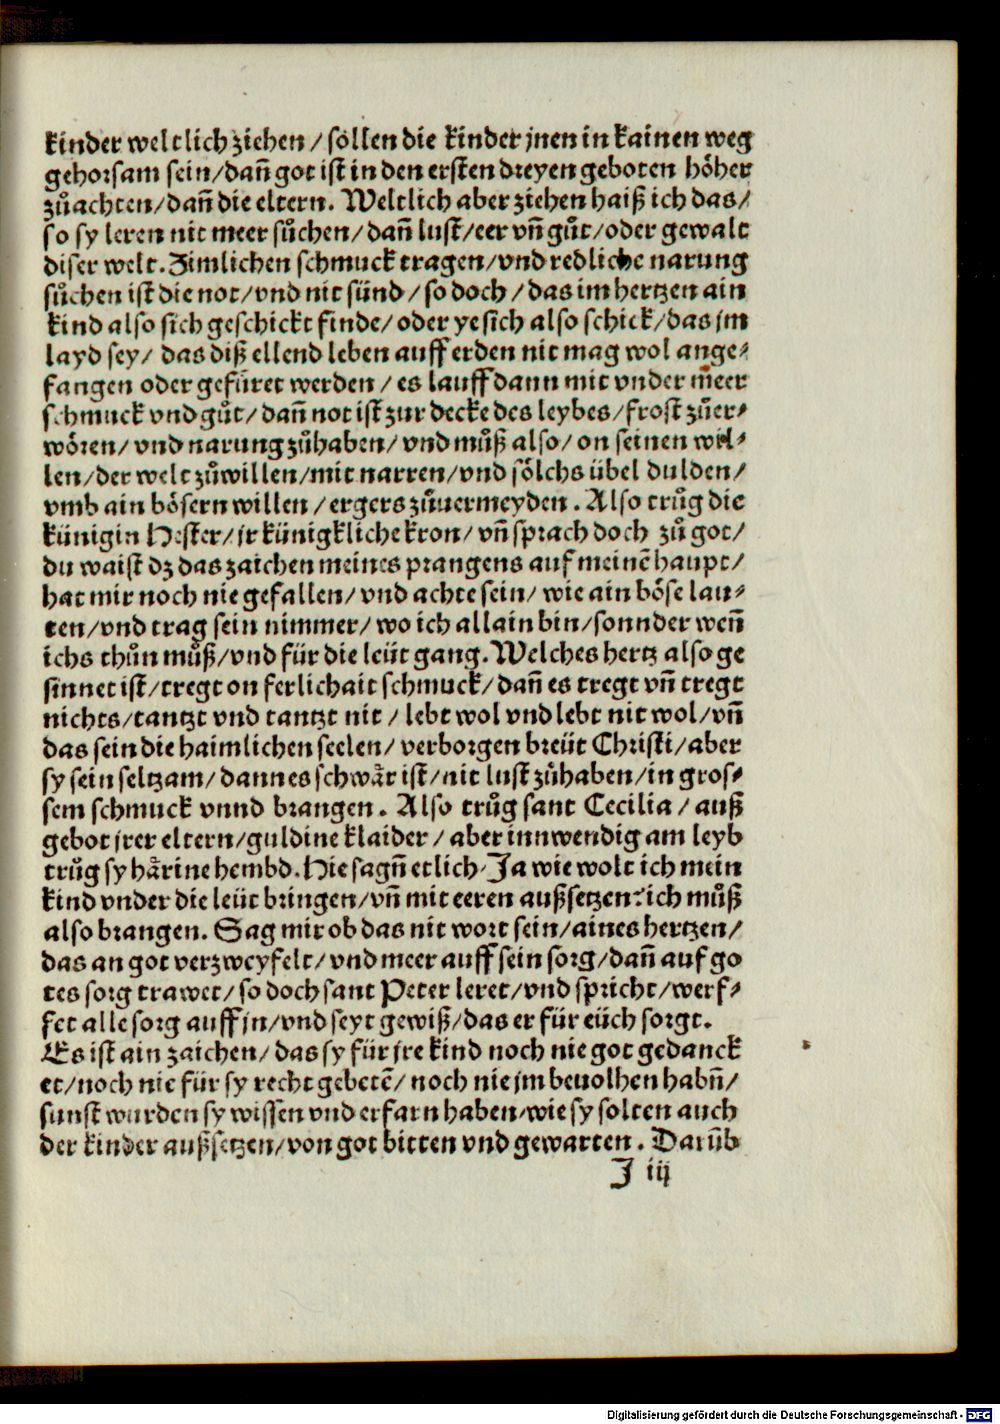 kinder weltlich ziehen / söllen die kinder jnen in kainen weg
gehorsam sein/dañ got ist in den ersten dreyen geboten höher
zůachten/dañ die eltern. Weltlich aber ziehen haiß ich das/
so sy leren nit meer sůchen/dañ lust/eer vñ gůt/oder gewalt
diser welt. Zimlichen schmuck tragen/vnd redliche narung
sůchen ist die not/vnd nit sünd/so doch/das im hertzen ain
kind also sich geschickt finde/oder ye sich also schick/das jm
layd sey/ das diß ellend leben auff erden nit mag wol ange⸗
fangen oder gefüret werden/es lauff dann mit vnder m̃eer
schmuck vnd gůt/dañ not ist zur decke des leybes/frost zůer⸗
wören/ vnd narung zůhaben/ vnd můß also/ on seinen wil⸗
len/der welt zůwillen/mit narren/vnd sölchs übel dulden/
vmb ain bösern willen / ergers zůuermeyden . Also trůg die
künigin Hester/jr künigkliche kron/ vñ sprach doch zů got/
du waist dz das zaichen meines prangens auf meinẽ haupt/
hat mir noch nie gefallen/vnd achte sein/ wie ain böse lau⸗
ten/vnd trag sein nimmer/ wo ich allain bin/sonnder weñ
ichs thůn můß/vnd für die leüt gang. Welches hertz also ge
sinnet ist/tregt on ferlichait schmuck/dañ es tregt vñ tregt
nichts/tantzt vnd tantzt nit / lebt wol vnd lebt nit wol/vñ
das sein die haimlichen seelen/ verborgen breüt Christi/aber
sy sein seltzam/dann es schwär ist/nit lust zůhaben/in gros⸗
sem schmuck vnnd brangen. Also trůg sant Cecilia / auß
gebot jrer eltern/guldine klaider/aber innwendig am leyb
trůg sy härine hembd. Hie sagñ etlich/Ja wie wolt ich mein
kind vnder die leüt bringen/vñ mit eeren außsetzen: ich můß
also brangen. Sag mir ob das nit wort sein/aines hertzen/
das an got verzweyfelt/vnd meer auff sein sorg/dañ auf go
tes sorg trawet/so doch sant Peter leret/vnd spricht/werf⸗
fet alle sorg auff jn/vnd seyt gewiß/das er für eüch sorgt.
Es ist ain zaichen/das sy für jre kind noch nie got gedanck
et/noch nie für sy recht gebetẽ/noch nie jm beuolhen habñ/
sunst wurden sy wissen vnd erfarn haben/wie sy solten auch
der kinder außsetzen/von got bitten vnd gewarten. Darũb
J iij
Digitalisierung gefördert durch die Deutsche Forschungsgemeinschaft - DFG